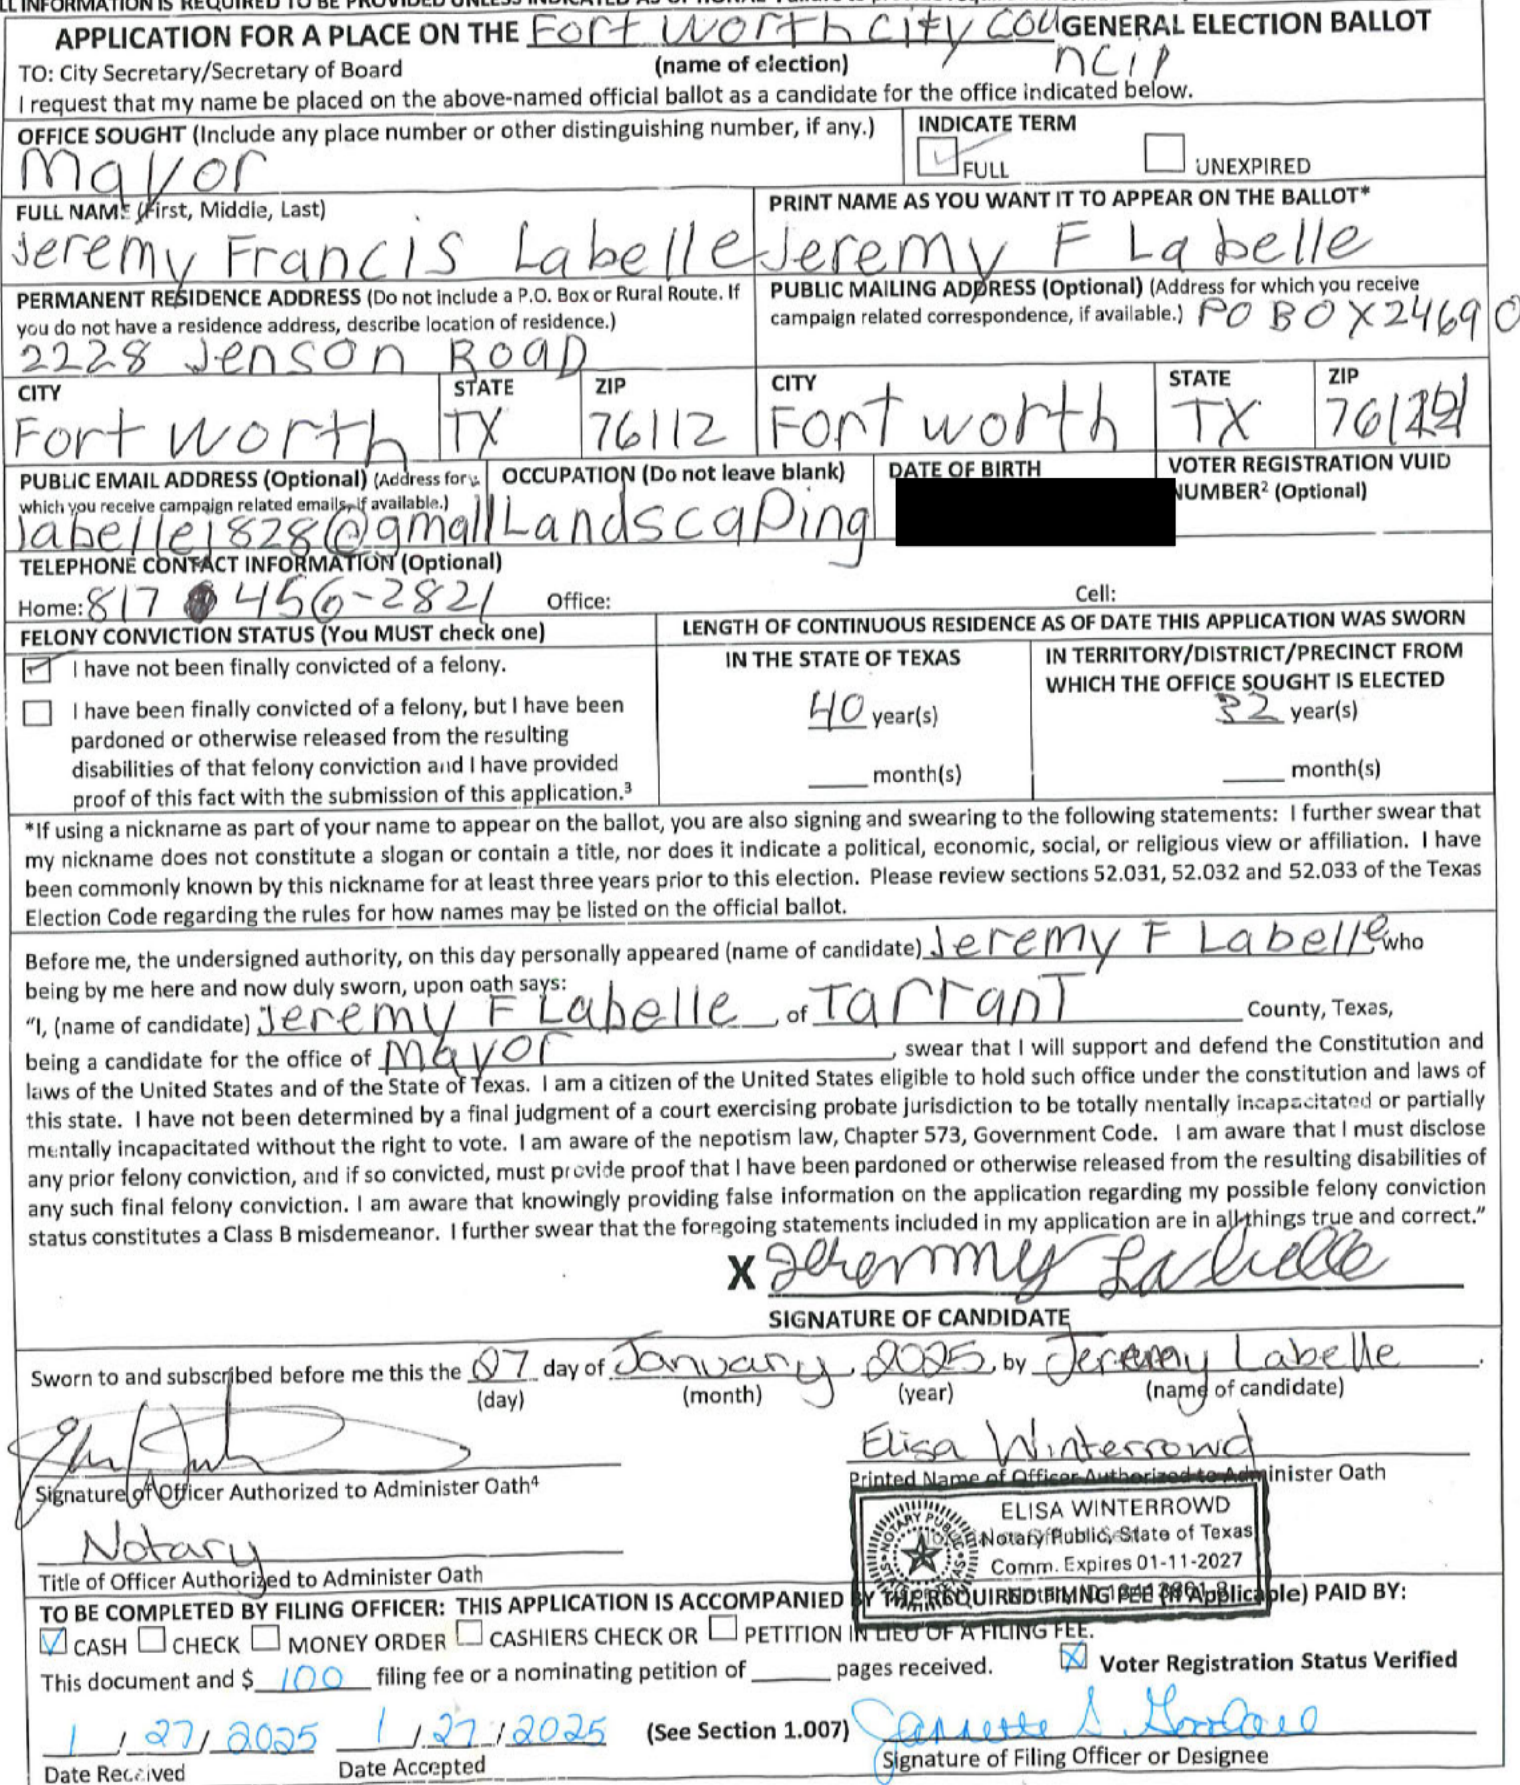 ALL INFORMATION IS REQUIRED TO BE PROVIDED UNLESS INDICATED AS OPTIONAL
APPLICATION FOR A PLACE ON THE Fort Worth City Cou GENERAL ELECTION BALLOT
TO: City Secretary/Secretary of Board (name of election) ncil
I request that my name be placed on the above-named official ballot as a candidate for the office indicated below.
OFFICE SOUGHT (Include any place number or other distinguishing number, if any.)
Mayor
INDICATE TERM
FULL UNEXPIRED
FULL NAME (First, Middle, Last)
Jeremy Francis Labelle
PRINT NAME AS YOU WANT IT TO APPEAR ON THE BALLOT*
Jeremy F Labelle
PERMANENT RESIDENCE ADDRESS (Do not include a P.O. Box or Rural Route. If
you do not have a residence address, describe location of residence.)
2228 Jenson Road
PUBLIC MAILING ADDRESS (Optional) (Address for which you receive
campaign related correspondence, if available.) PO BOX 24690
CITY STATE ZIP
Fort Worth TX 76112
CITY STATE ZIP
Fort Worth TX
PUBLIC EMAIL ADDRESS (Optional) (Address for
which you receive campaign related emails, if available.)
labelle1828@gmail
OCCUPATION (Do not leave blank)
Landscaping
DATE OF BIRTH
VOTER REGISTRATION VUID
NUMBER² (Optional)
TELEPHONE CONTACT INFORMATION (Optional)
Home: 817 456-2821 Office: Cell:
FELONY CONVICTION STATUS (You MUST check one)
I have not been finally convicted of a felony.
I have been finally convicted of a felony, but I have been
pardoned or otherwise released from the resulting
disabilities of that felony conviction and I have provided
proof of this fact with the submission of this application.³
LENGTH OF CONTINUOUS RESIDENCE AS OF DATE THIS APPLICATION WAS SWORN
IN THE STATE OF TEXAS
40 year(s)
month(s)
IN TERRITORY/DISTRICT/PRECINCT FROM
WHICH THE OFFICE SOUGHT IS ELECTED
32 year(s)
month(s)
*If using a nickname as part of your name to appear on the ballot, you are also signing and swearing to the following statements: I further swear that
my nickname does not constitute a slogan or contain a title, nor does it indicate a political, economic, social, or religious view or affiliation. I have
been commonly known by this nickname for at least three years prior to this election. Please review sections 52.031, 52.032 and 52.033 of the Texas
Election Code regarding the rules for how names may be listed on the official ballot.
Before me, the undersigned authority, on this day personally appeared (name of candidate) Jeremy F Labelle who
being by me here and now duly sworn, upon oath says:
"I, (name of candidate) Jeremy F Labelle, of Tarrant County, Texas,
being a candidate for the office of Mayor, swear that I will support and defend the Constitution and
laws of the United States and of the State of Texas. I am a citizen of the United States eligible to hold such office under the constitution and laws of
this state. I have not been determined by a final judgment of a court exercising probate jurisdiction to be totally mentally incapacitated or partially
mentally incapacitated without the right to vote. I am aware of the nepotism law, Chapter 573, Government Code. I am aware that I must disclose
any prior felony conviction, and if so convicted, must provide proof that I have been pardoned or otherwise released from the resulting disabilities of
any such final felony conviction. I am aware that knowingly providing false information on the application regarding my possible felony conviction
status constitutes a Class B misdemeanor. I further swear that the foregoing statements included in my application are in all things true and correct."
X Jeremy Labelle
SIGNATURE OF CANDIDATE
Sworn to and subscribed before me this the 27 day of January, 2025, by Jeremy Labelle.
(day) (month) (year) (name of candidate)
Elisa Winterrowd
Signature of Officer Authorized to Administer Oath⁴
Printed Name of Officer Authorized to Administer Oath
Notary
Title of Officer Authorized to Administer Oath
NOTARY PUBLIC
ELISA WINTERROWD
Notary Public, State of Texas
Comm. Expires 01-11-2027
TO BE COMPLETED BY FILING OFFICER: THIS APPLICATION IS ACCOMPANIED BY THE REQUIRED FILING FEE (If Applicable) PAID BY:
CASH CHECK MONEY ORDER CASHIERS CHECK OR PETITION IN LIEU OF A FILING FEE.
This document and $ 100 filing fee or a nominating petition of pages received. Voter Registration Status Verified
1 / 27 / 2025 1 / 27 / 2025 (See Section 1.007)
Date Received Date Accepted Signature of Filing Officer or Designee